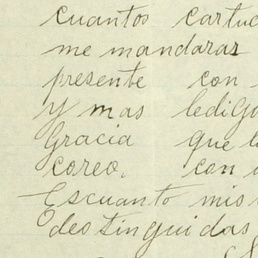 cuantos cartuc
me mandaran
presente con
y mas ledigo
Gracia que l
coreo. con
Escuanto mis
destinguidas